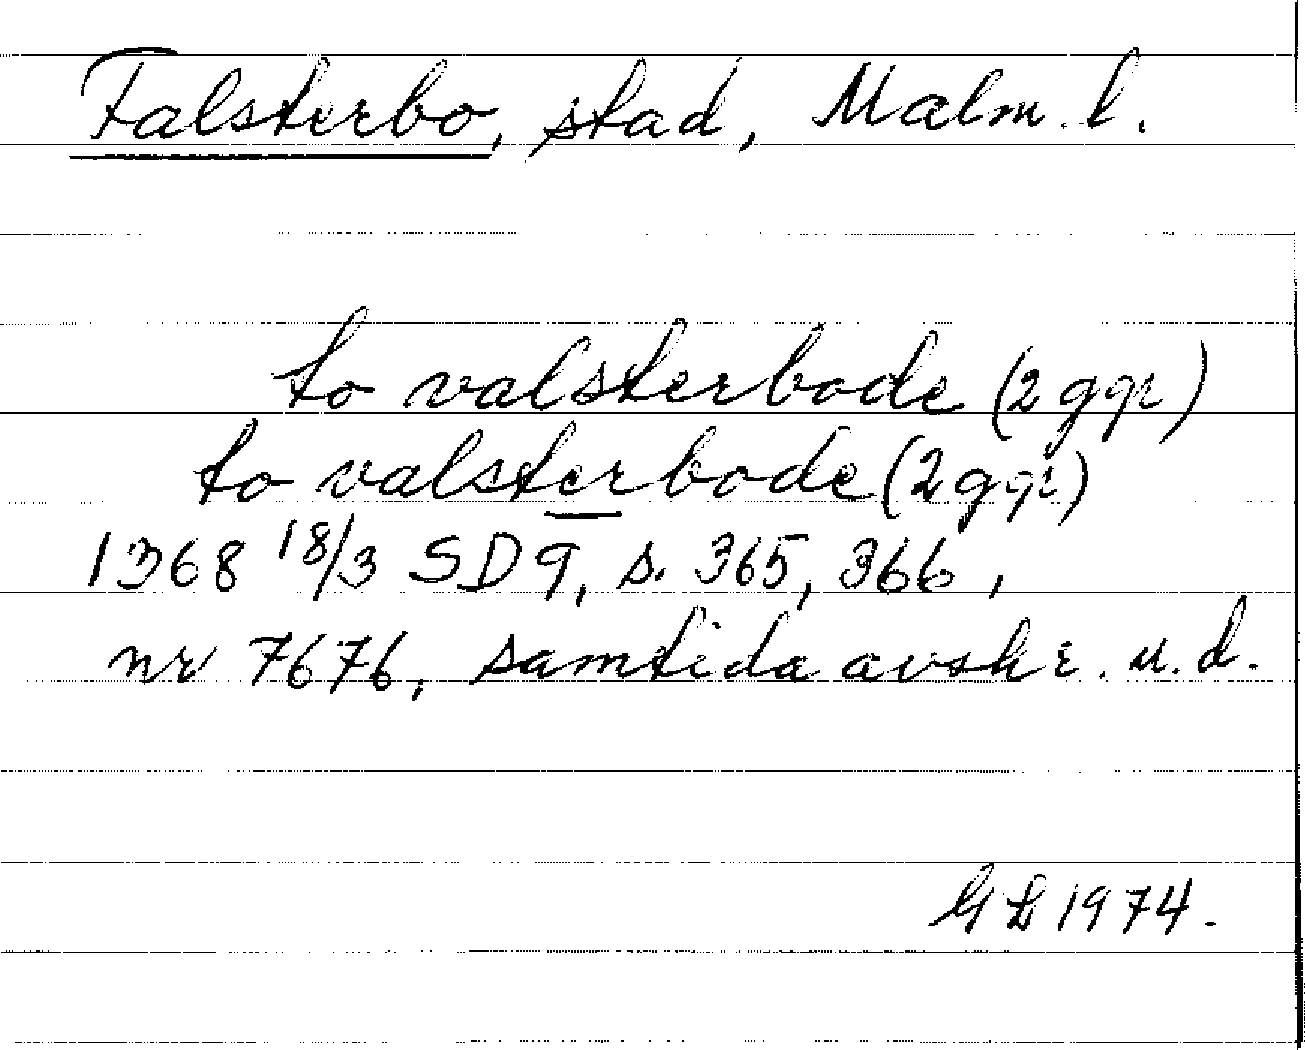 Falsterbo, stad, Malm. l.
to valsterbode (2 ggr)
to valsterbode (2 ggr)
1368 18/3 SD 9, s. 365, 366,
nr 7676, samtida avskr. u.d.
GL 1974.